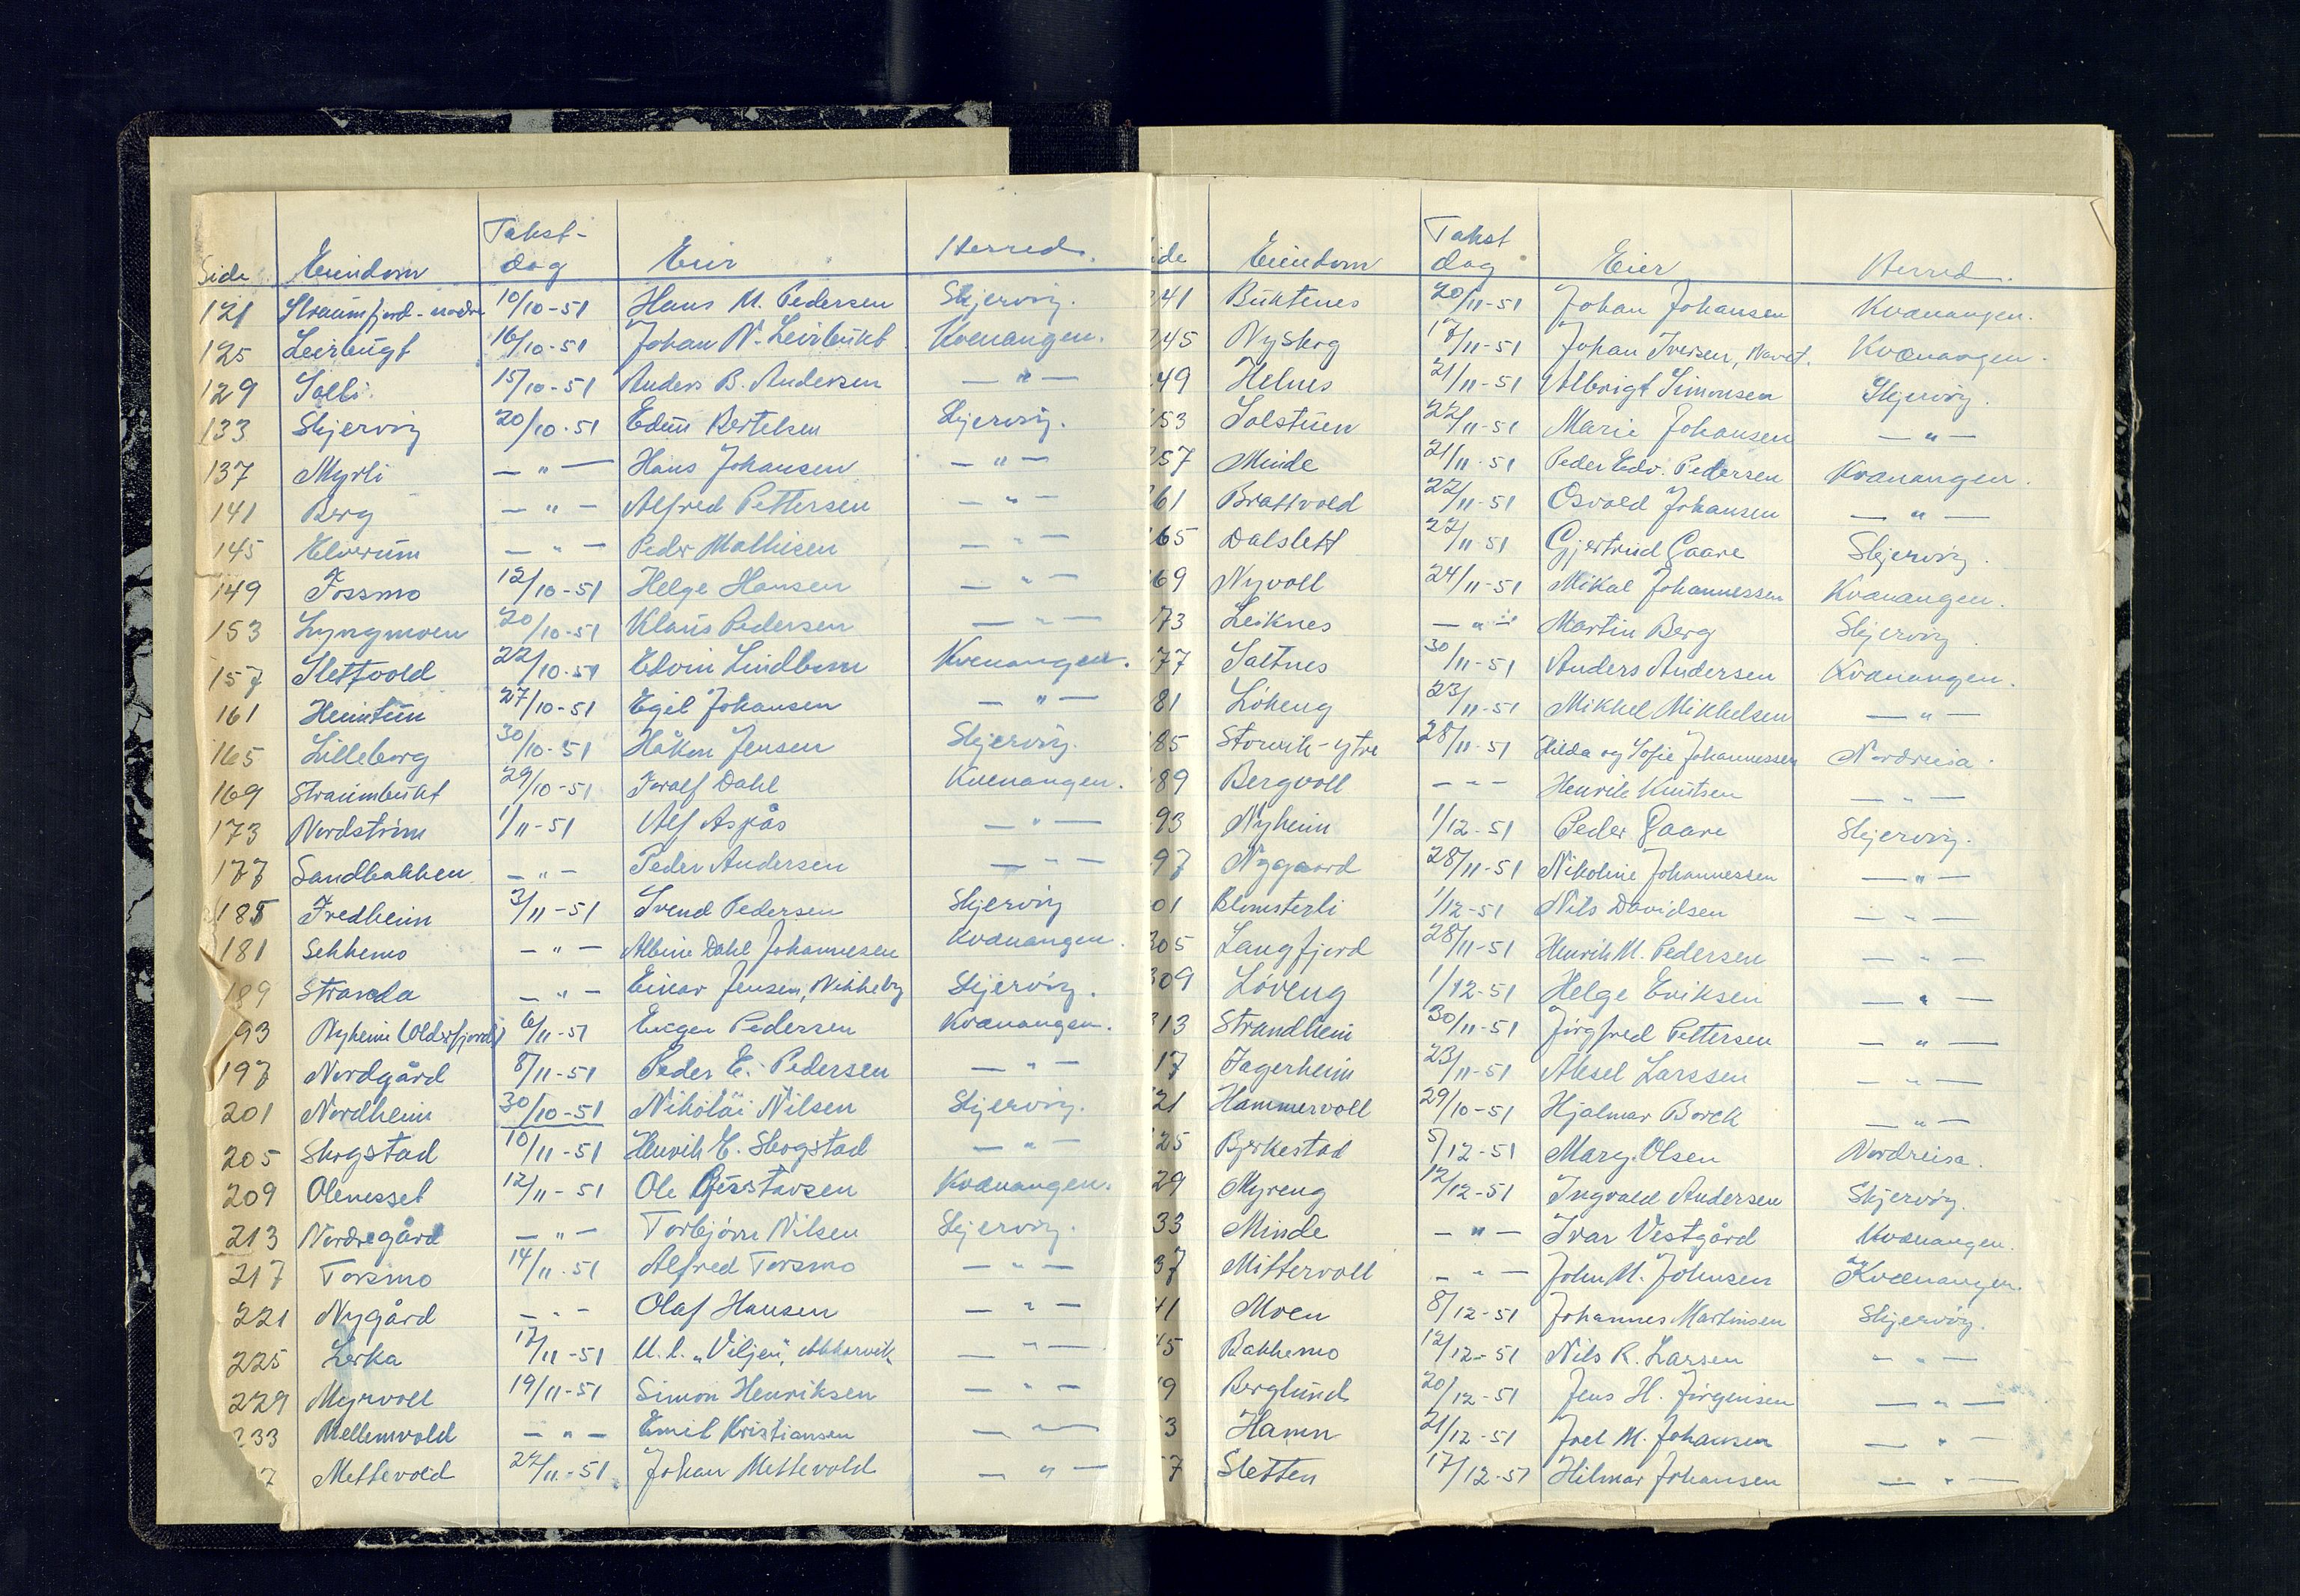 Side Eiendom Takst-dag Eier Herred.
121 Straumfjord-nedre 10/10-51 Hans M. Pedersen Skjervøy.
125 Leirbugt 16/10-51 Johan N. Leirbukt Kvænangen.
129 Solli. 15/10-51 Anders B. Andersen — " —
133 Skjervøy 20/10-51 Edin Bertelsen Skjervøy.
137 Myrli — " — Hans Johansen — " —
141 Berg — " — Alfred Pettersen — " —
145 Elverum — " — Peder Mathisen — " —
149 Fossmo 12/10-51 Helge Hansen — " —
153 Lyngmoen 20/10-51 Klaus Pedersen — " —
157 Slettvold 22/10-51 Edvin Lindbom Kvenangen.
161 Heimtun 27/10-51 Egil Johansen — " —
165 Lilleborg 30/10-51 Håkon Jensen Skjervøy.
169 Straumbukt 29/10-51 Toralf Dahl Kvenangen.
173 Nordstrøm 1/11-51 Alf Aspås — " —
177 Sandbakken — " — Peder Andersen — " —
185 Fredheim 3/11-51 Svend Pedersen Skjervøy
181 Sekkemo — " — Albine Dahl Johannesen Kvænangen.
189 Stranda — " — Einar Jensen, Nikkeby Skjervøy.
93 Nyheim (Olderfjord) 6/11-51 Eugen Pedersen Kvænangen.
197 Nordgård 8/11-51 Peder E. Pedersen — " —
201 Nordheim 30/10-51 Nikolai Nilsen Skjervøy.
205 Skogstad 10/11-51 Henrik E. Skogstad — " —
209 Olenesset 12/11-51 Ole Gustavsen Kvænangen.
213 Nordregård — " — Torbjørn Nilsen Skjervøy.
217 Torsmo 14/11-51 Alfred Torsmo — " —
221 Nygård — " — Olaf Hansen — " —
225 Lerka 17/11-51 U.l. "Viljen", Akkarvik — " —
229 Myrvoll 19/11-51 Simon Henriksen — " —
233 Mellemvold — " — Emil Kristiansen — " —
7 Mettevold 22/11-51 Johan Mettevold — " —
ide Eiendom Takst dag Eier Herred.
241 Buktenes 20/11-51 Johan Johansen Kvænangen.
245 Nyskog 17/11-51 Johan Iversen, Navet. Kvænangen.
49 Helnes 21/11-51 Albrigt Simonsen Skjervøy.
253 Solstuen 22/11-51 Marie Johansen — " —
257 Minde 21/11-51 Peder Edv. Pedersen Kvænangen.
261 Brattvold 22/11-51 Osvald Johansen — " —
65 Dalslett 22/11-51 Gjertrud Gaare Skjervøy.
69 Nyvoll 24/11-51 Mikal Johannessen Kvænangen.
73 Leiknes — " — Martin Berg Skjervøy.
77 Saltnes 30/11-51 Anders Andersen Kvænangen.
81 Løkeng 23/11-51 Mikkel Mikkelsen — " —
85 Storvik-ytre 28/11-51 Hilda og Sofie Johannessen Nordreisa.
89 Bergvoll — " — Henrik Knutsen — " —
93 Nyheim 1/12-51 Peder Gaare Skjervøy.
97 Nygaard 28/11-51 Nikoline Johannessen — " —
01 Blomsterli 1/12-51 Nils Davidsen — " —
305 Langfjord 28/11-51 Henrik M. Pedersen — " —
309 Løveng 1/12-51 Helge Eriksen — " —
313 Strandheim 30/11-51 Jørgfred Pettersen — " —
17 Fagerheim 23/11-51 Aksel Larssen — " —
21 Hammervoll 29/10-51 Hjalmar Borck — " —
25 Bjerkestad 5/12-51 Marg. Olsen Nordreisa.
29 Myreng 12/12-51 Ingvald Andersen Skjervøy.
33 Minde — " — Ivar Vestgård Kvænangen.
37 Mittervoll — " — John M. Johnsen Kvænangen.
41 Moen 8/12-51 Johannes Martinsen Skjervøy.
45 Bakkemo 12/12-51 Nils R. Larsen — " —
9 Berglund 20/12-51 Jens H. Jørgensen — " —
3 Hamn 21/12-51 Joel M. Johansen — " —
7 Sletten 17/12-51 Hilmar Johansen — " —